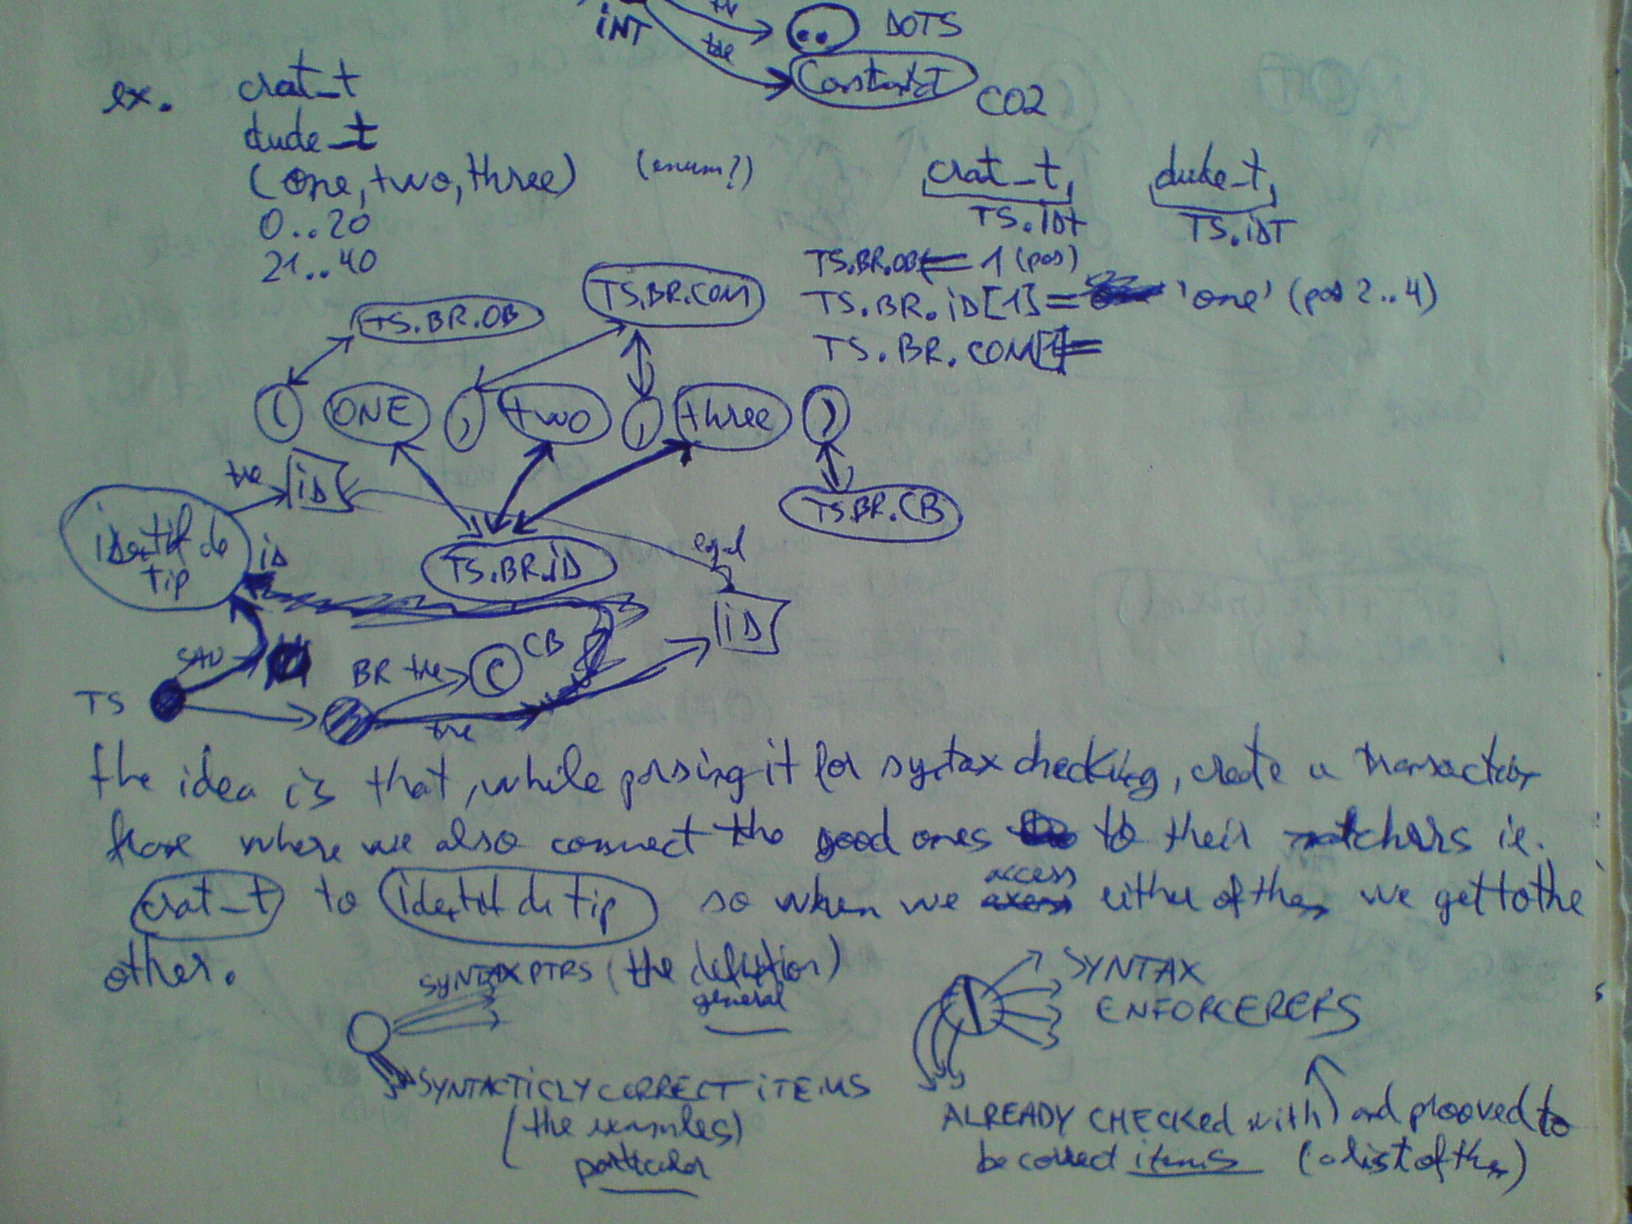 iNT the DOTS
the Constant CO2
ex. crat_t
dude_t
(one, two, three) (enum?)
0..20
21..40
crat_t, dude_t,
TS.iDt TS.iDT
TS.BR.OB = 1 (pos)
TS.BR.iD[1] = 'one' (pos 2..4)
TS.BR.COM[1]=
TS.BR.OB TS.BR.COM
( ONE , two , three )
the iD TS.BR.CB
identif de tip iD
TS.BR.iD
egal
iD
SAU
BR the C CB
TS
the
the idea is that, while parsing it for syntax checking, create a transaction
where we also connect the good ones to their matchers ie.
crat_t to identif de tip so when we access either of them we get to the
other.
SYNTAX PTRS (the definition)
general
SYNTACTICLY CORRECT iTEMS
(the examples)
particular
SYNTAX
ENFORCERERS
ALREADY CHECKED with and prooved to
be correct items (a list of them)